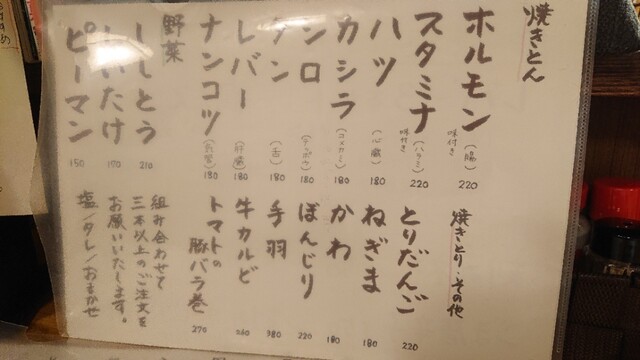 焼きとん
ホルモン 味付き (腸) 220
スタミナ 味付き (ハラミ) 220
ハツ (心臓) 180
カシラ (コメカミ) 180
シロ (テッポウ) 180
タン (舌) 180
レバー (肝臓) 180
ナンコツ (食管) 180
野菜
ししとう 210
しいたけ 150
ピーマン 150
焼きとり・その他
とりだんご 220
ねぎま 180
かわ 180
ぼんじり 220
手羽 380
牛カルビ
トマトの豚バラ巻 270
組み合わせて
三本以上のご注文を
お願いいたします。
塩/タレ/おまかせ